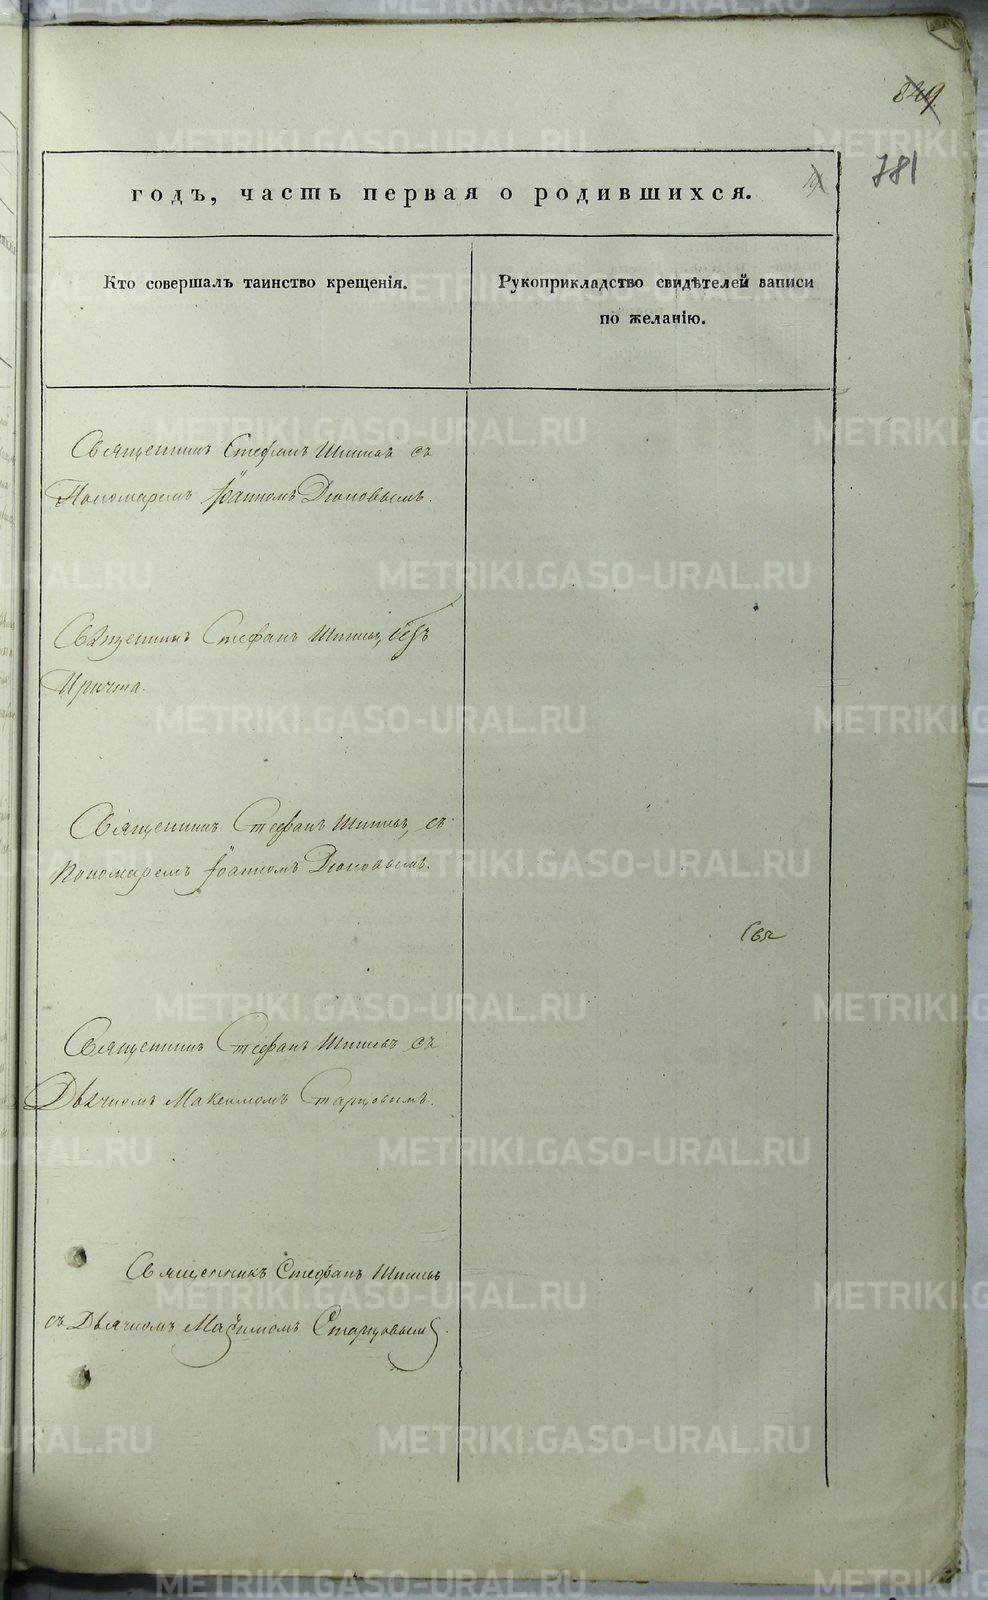 849
781
19
годъ, часть первая о родившихся.
Кто совершалъ таинство крещенія.
Рукоприкладство свидѣтелей записи
по желанію.
Священникъ Стефанъ съ
Пономаремъ Іоанномъ Дюковымъ.
Священникъ Стефанъ безъ
Причта.
Священникъ Стефанъ съ
Пономаремъ Іоанномъ Дюковымъ.
Священникъ Стефанъ съ
Дьячкомъ Максимомъ Старцовымъ.
Священникъ Стефанъ
съ Дьячкомъ Максимомъ Старцовымъ.
METRIKI.GASO-URAL.RU